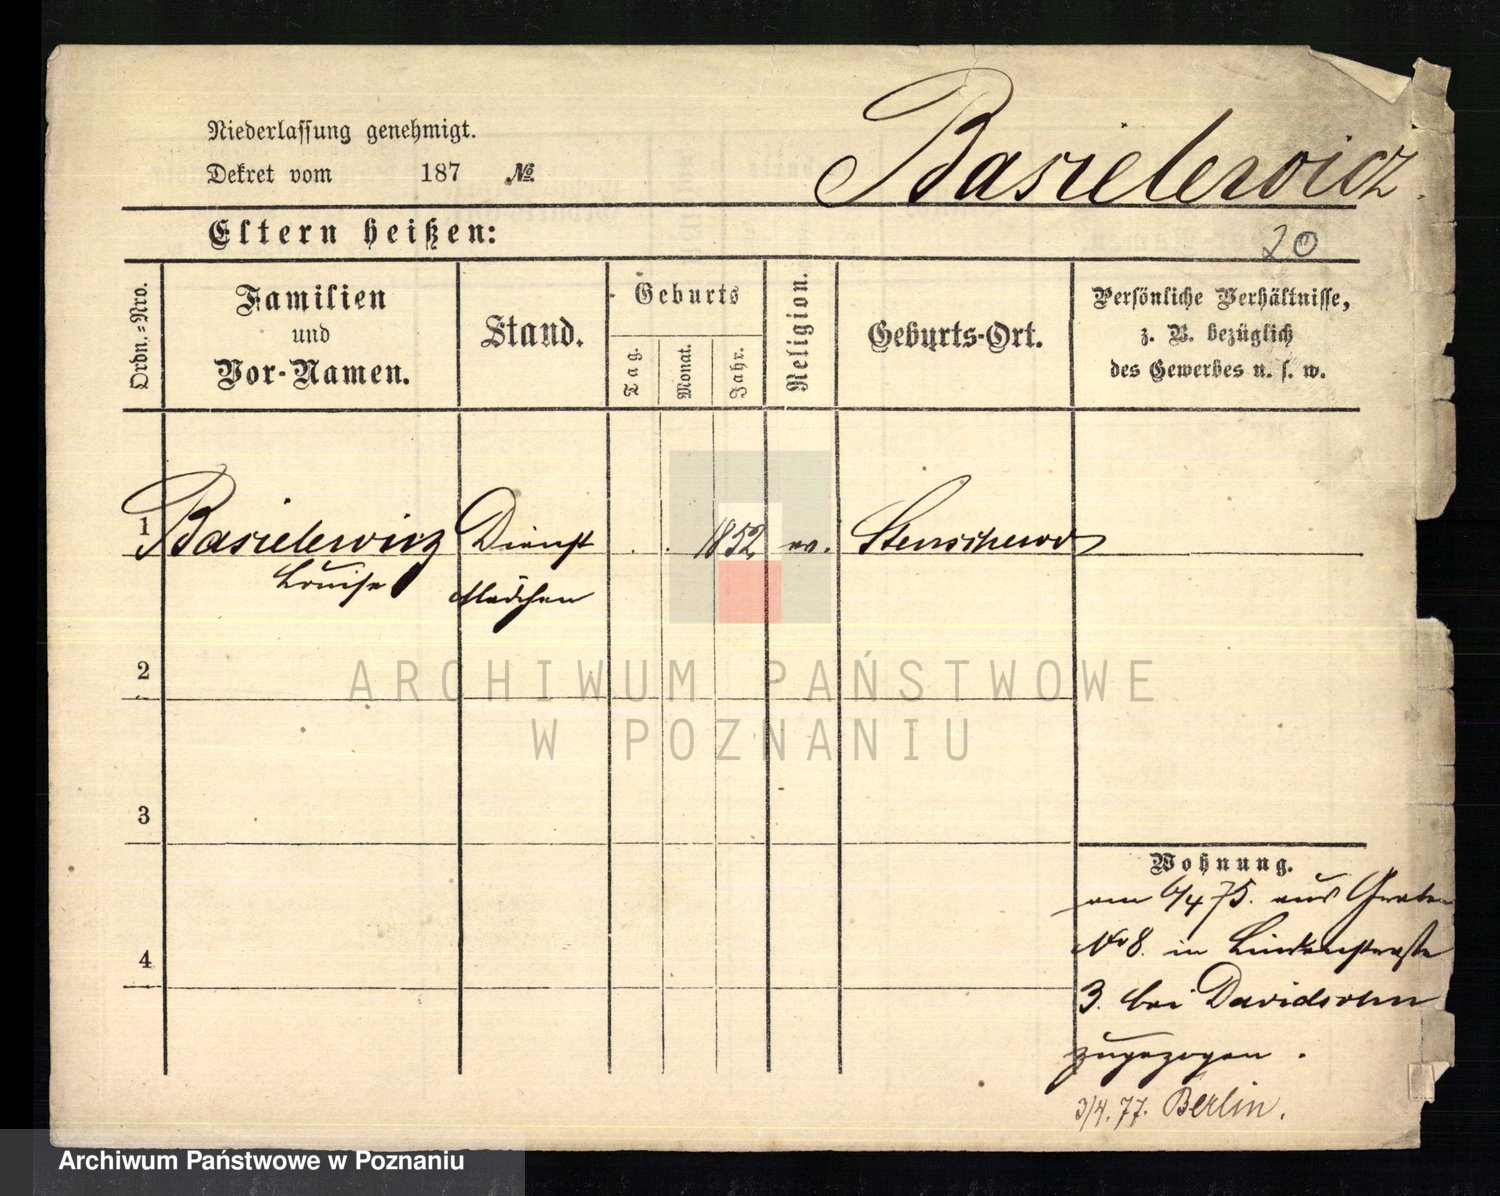 Niederlassung genehmigt.
Dekret vom 187 №
Basielewicz.
Eltern heißen:
20
Ordn.-Nro.
Familien
und
Vor-Namen.
Stand.
Geburts
Tag.
Monat.
Jahr.
Religion.
Geburts-Ort.
Persönliche Verhältnisse,
z. B. bezüglich
des Gewerbes u. s. w.
1 Basielewicz Dienst . . 1852 ev. Stenschewo
Louise Mädchen
2
3
4
Wohnung.
am 6/4 75. aus Graben
No 8. in Lindenstraße
3. bei Davidsohn
zugezogen.
3/4. 77. Berlin.
ARCHIWUM PAŃSTWOWE
W POZNANIU
Archiwum Państwowe w Poznaniu